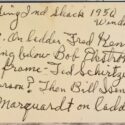 ing Ind Shack 1950
Wind
. On Ladder Fred Ken
ng below Bob
frame - Ted Schirtz
rson? Then Bill
Marquardt on Ladd